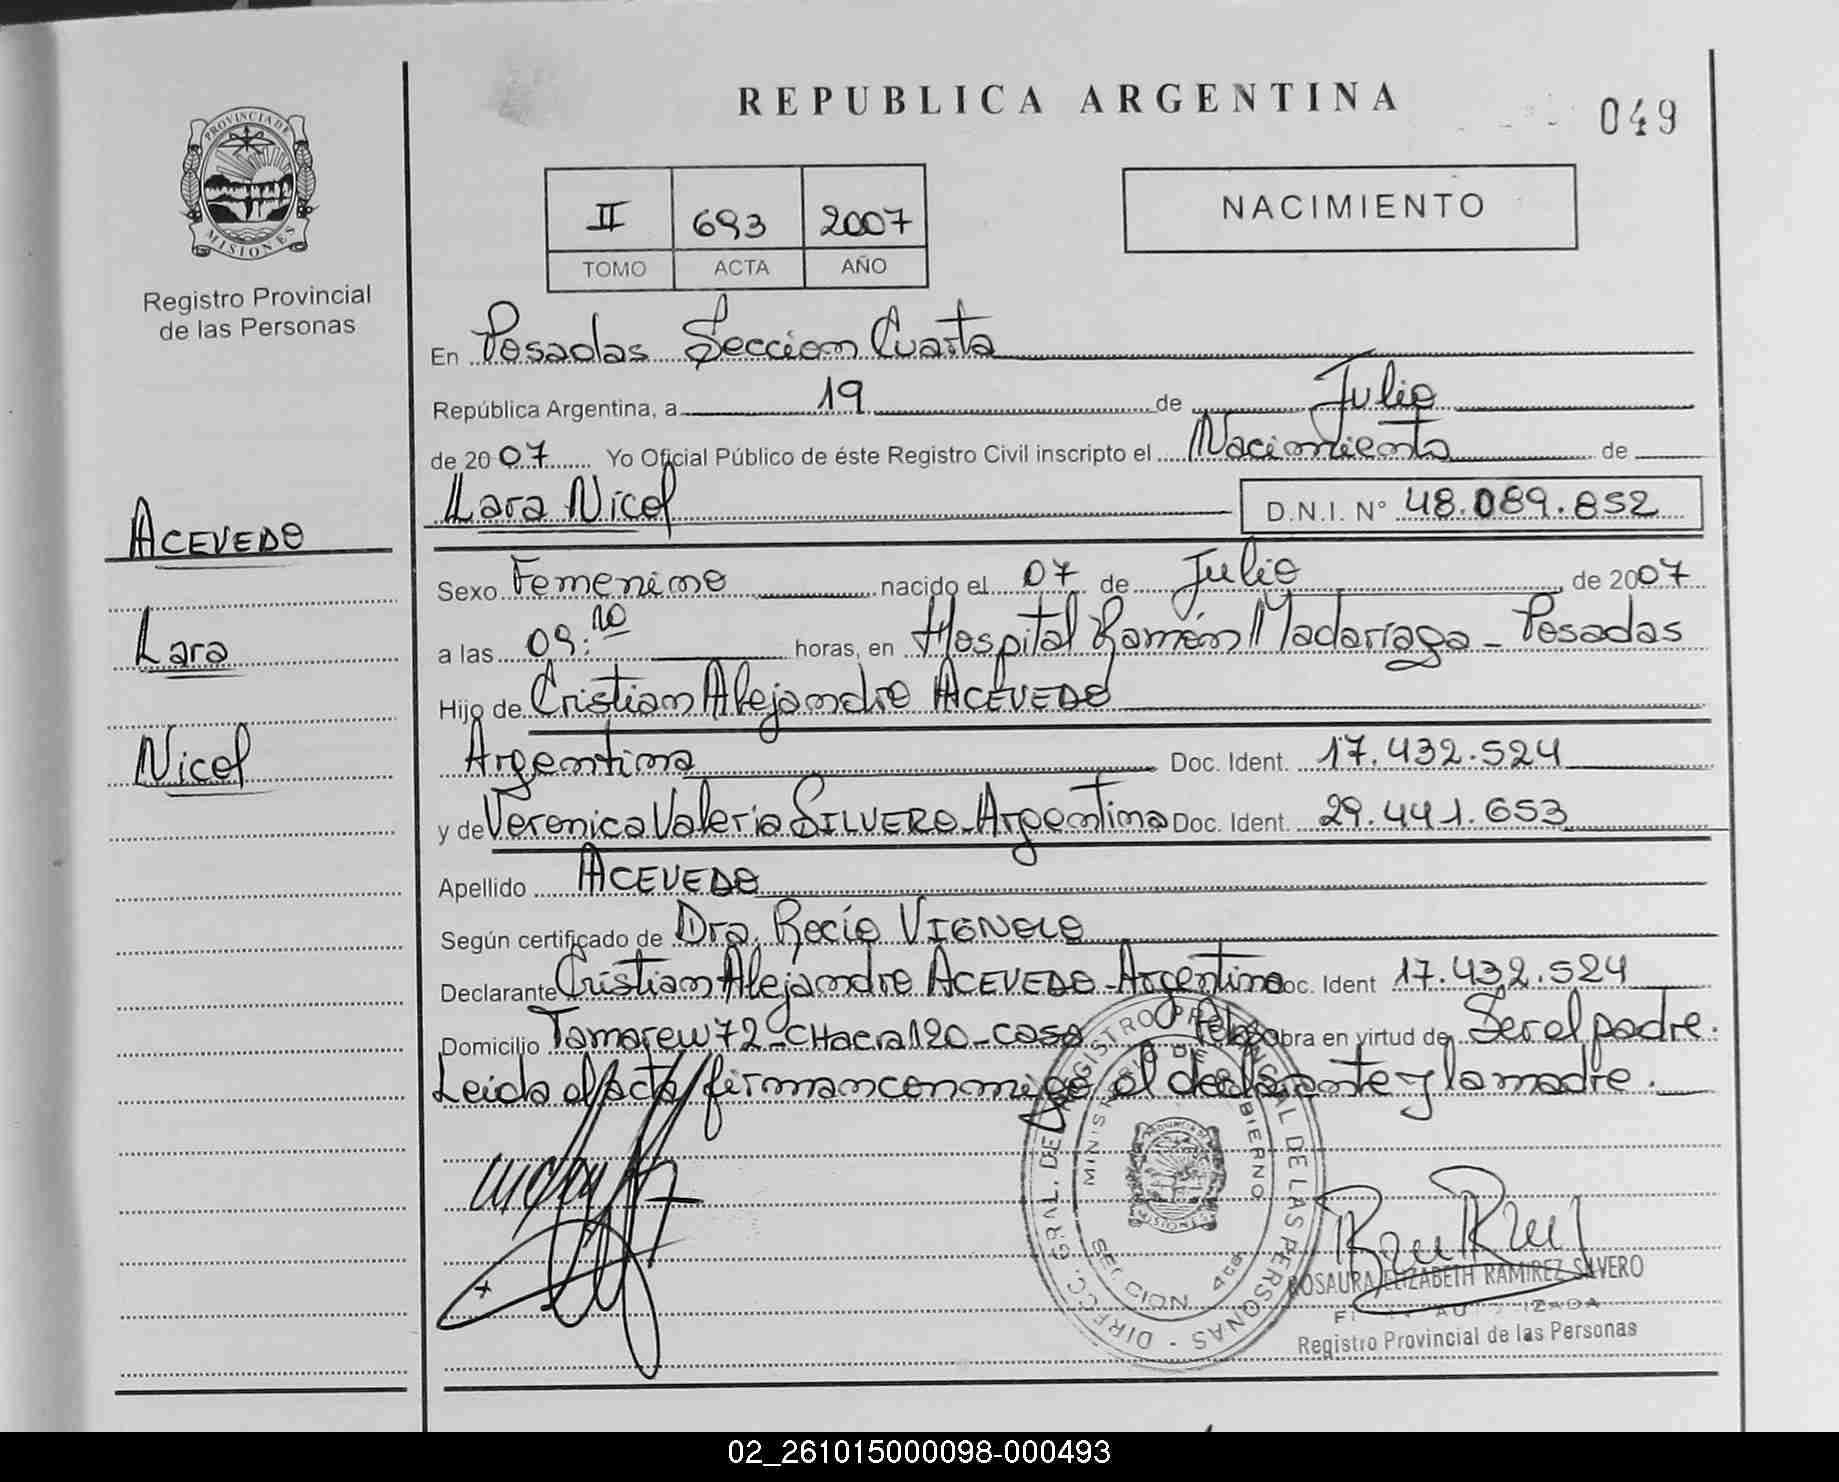 REPUBLICA ARGENTINA
049
PROVINCIA DE
MISIONES
Registro Provincial
de las Personas
II 693 2007
TOMO ACTA AÑO
NACIMIENTO
En Posadas Seccion Cuarta
República Argentina, a 19 de Julio
de 2007 Yo Oficial Público de éste Registro Civil inscripto el Nacimiento de
Lara Nicol D.N.I. N° 48.089.852
ACEVEDO
Lara
Nicol
Sexo Femenino nacido el 07 de Julio de 2007
a las 09:10 horas, en Hospital Ramón Madariaga - Posadas
Hijo de Cristian Alejandro ACEVEDO
Argentina Doc. Ident. 17.432.524
y de Veronica Valeria SILVERO - Argentina Doc. Ident. 29.441.653
Apellido ACEVEDO
Según certificado de Dra. Rocío VIGNOLO
Declarante Cristian Alejandro ACEVEDO - Argentino Doc. Ident 17.432.524
Domicilio 72 - CHacra 120 - casa obra en virtud de Ser el padre.
Leida el acta firman conmigo el declarante y la madre.
DIRECC. GRAL. DE REGISTRO PROVINCIAL DE LAS PERSONAS -
MINISTERIO DE GOBIERNO
SECCION 4ta
ROSAURA ELIZABETH RAMIREZ SILVERO
Registro Provincial de las Personas
02_261015000098-000493